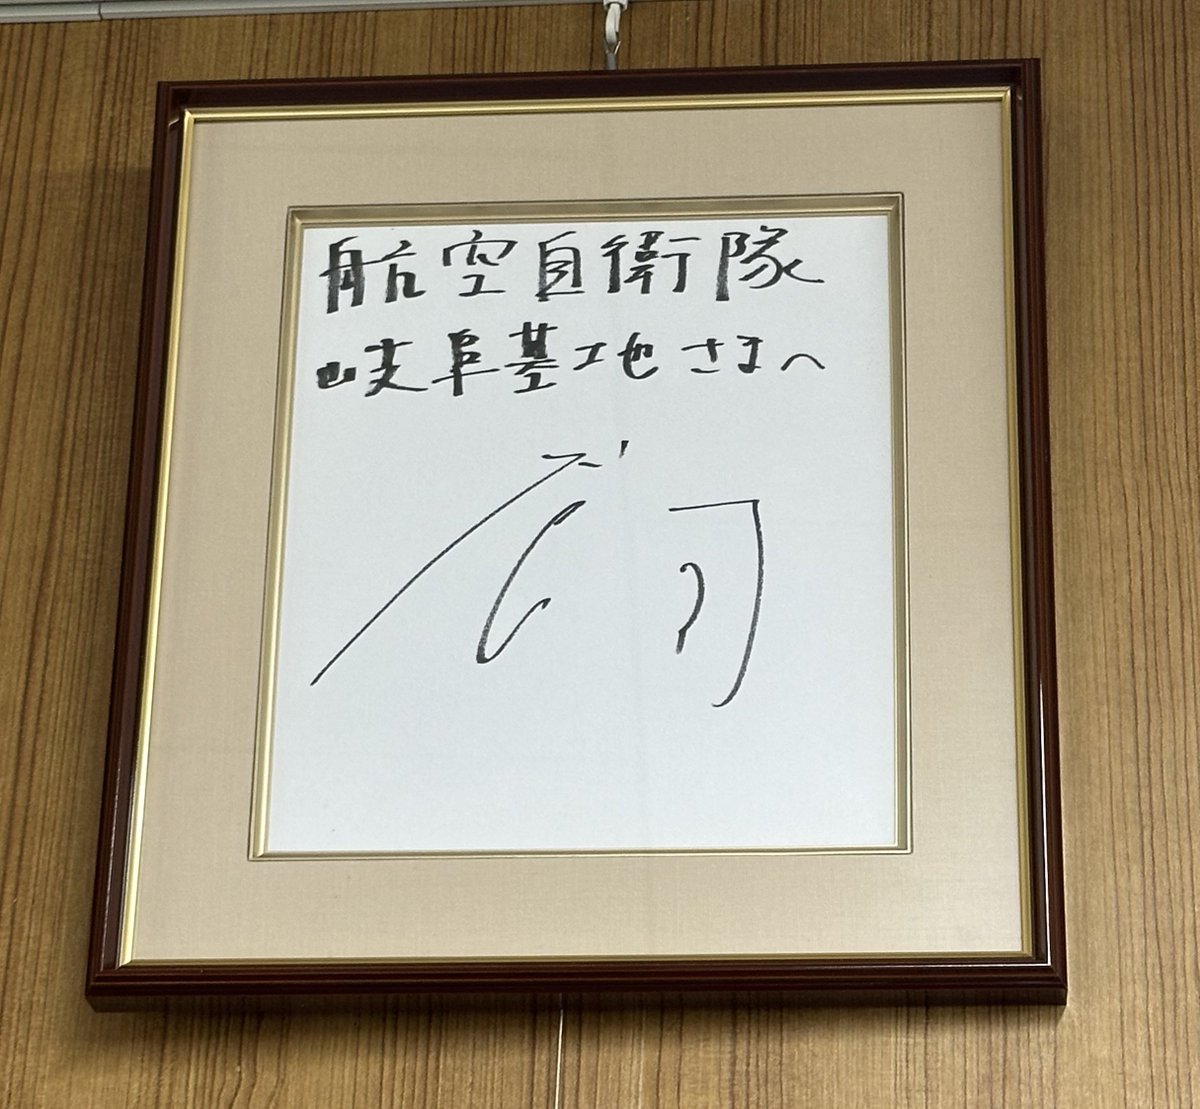 航空自衛隊
岐阜基地さまへ